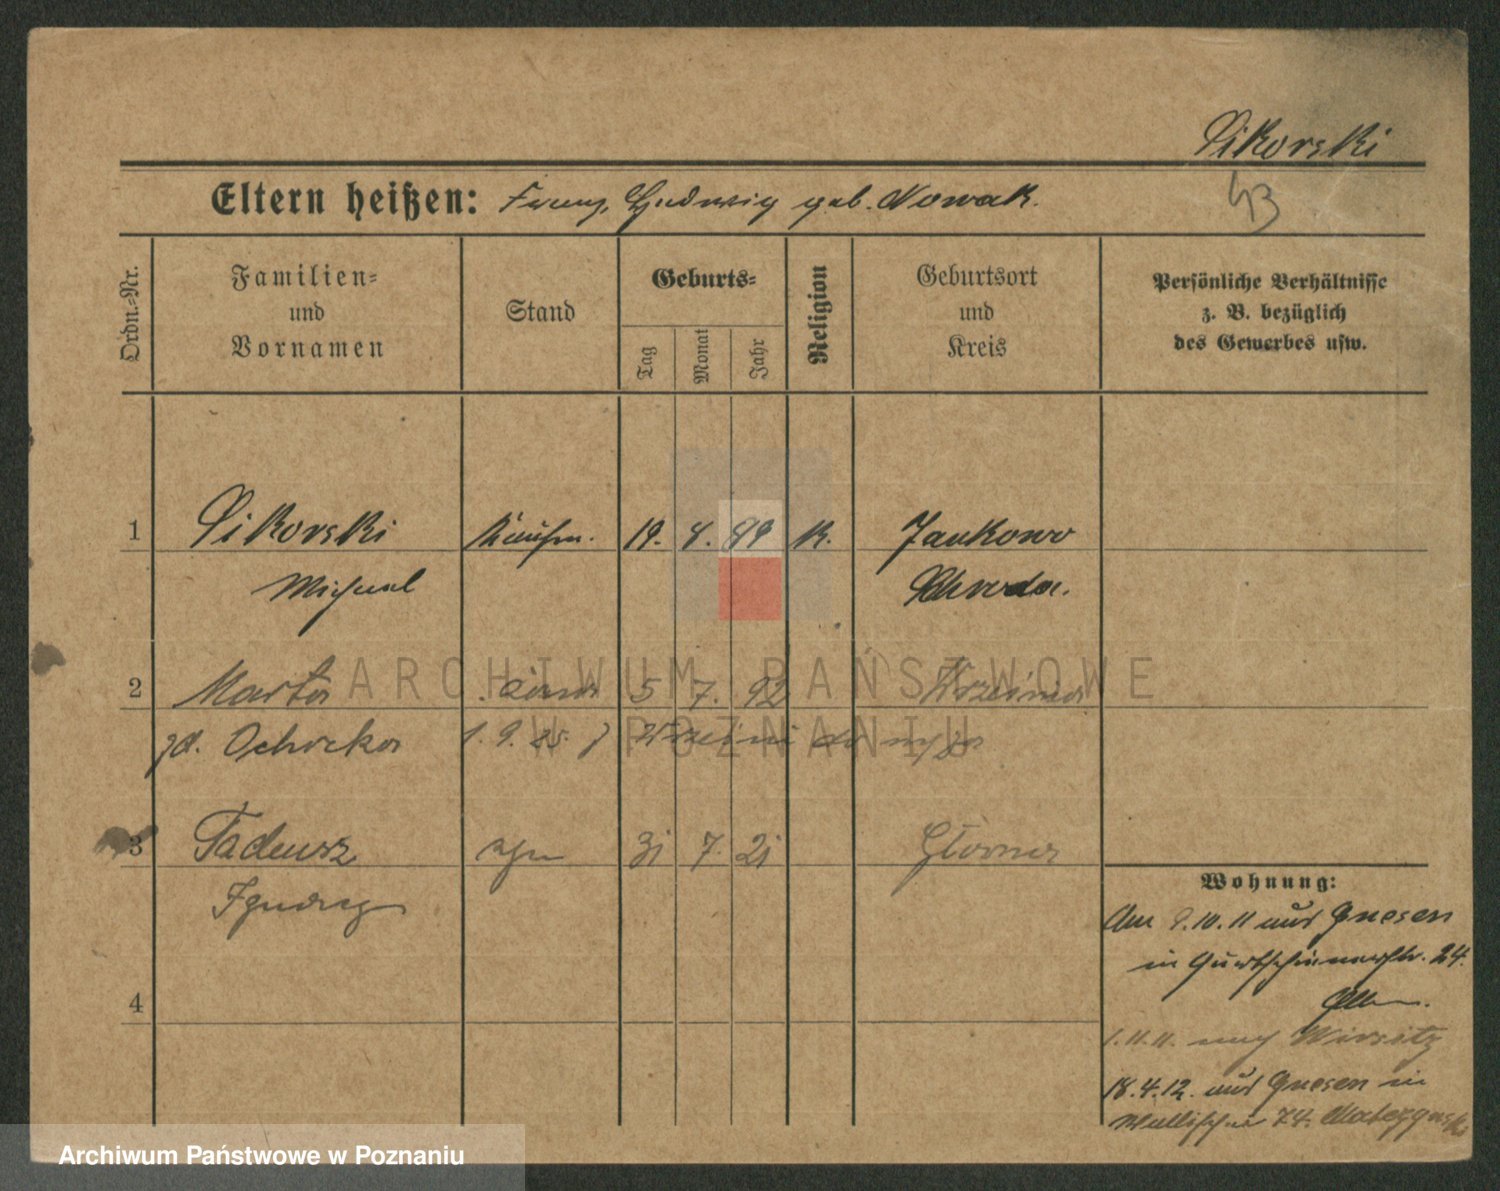 Sikorski
Eltern heißen: Franz, Hedwig geb. Nowak.
43
Ordn.-Nr.
Familien-
und
Vornamen
Stand
Geburts-
Tag
Monat
Jahr
Religion
Geburtsort
und
Kreis
Persönliche Verhältnisse
z. B. bezüglich
des Gewerbes usw.
1 Sikorski Kaufm. 19. 8. 89 k. Jankowo
Michael Schroda.
2 Marta 5 7. 92 Września
zd. Ochocka 1. 9. 25. z Wrześni
3 Tadeusz syn 31 7. 21 Główna
Ignacy
4
Wohnung:
Am 9.10.11 aus Gnesen
in Gurtschinerstr. 24.
1.11.11. nach Wirsitz
18.4.12. aus Gnesen in
Wallischei 74.
ARCHIWUM PAŃSTWOWE
W POZNANIU
Archiwum Państwowe w Poznaniu